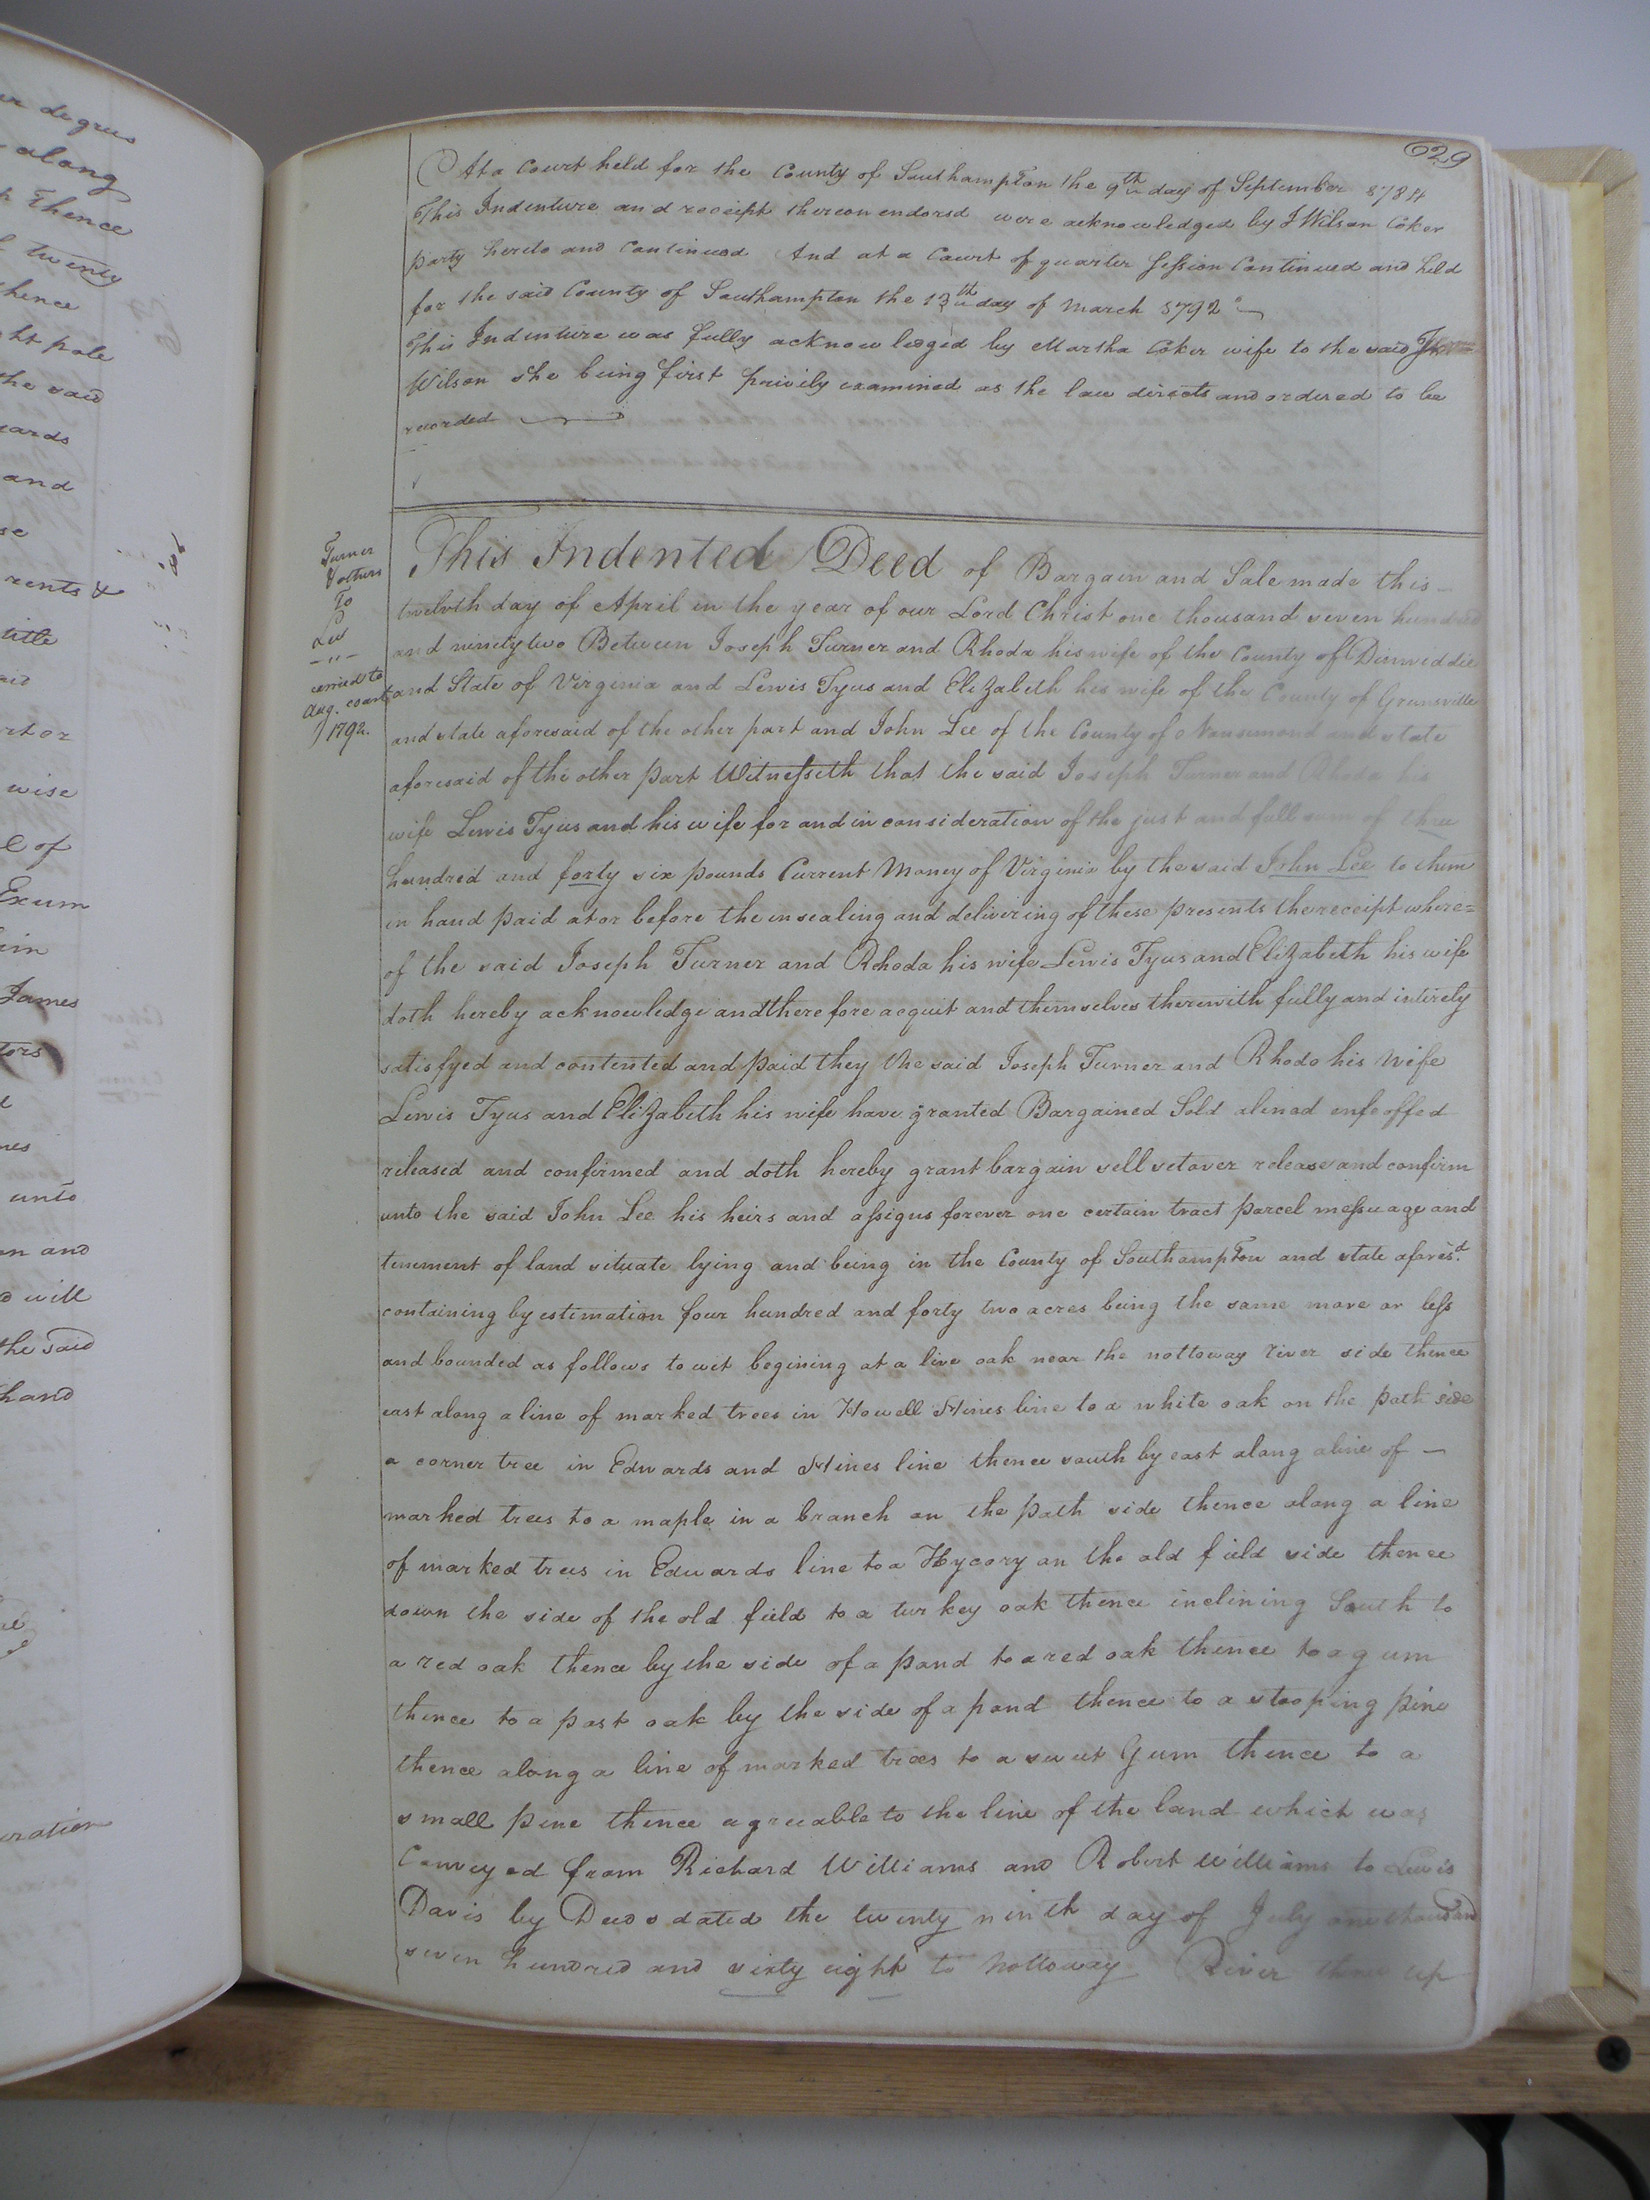 er degrees
along
Thence
twenty
thence
ght pole
the said
wards
and
se
rents &
title
said
rt or
wise
e of
Exum
him
James
tors
unto
on and
will
the said
hand
eration
629
At a Court held for the County of Southampton the 9th day of September 1784
This Indenture and receipt thereon endorsd were acknowledged by J Wilson Coker
party hereto and Continued And at a Court of quarter Session Continued and held
for the said County of Southampton the 13th day of March 1792
This Indenture was fully acknowledged by Martha Coker wife to the said
Wilson she being first privily examined as the law directs and ordered to be
recorded
Turner
& others
To
Lee
carried to
Aug. court
1792.
This Indented Deed of Bargain and Sale made this
twelvth day of April in the year of our Lord Christ one thousand seven hundred
and ninety two Between Joseph Turner and Rhoda his wife of the County of Dinwiddie
and State of Virginia and Lewis Tyus and Elizabeth his wife of the County of Greensville
and state aforesaid of the other part and John Lee of the County of Nansemond and state
aforesaid of the other part Witnesseth that the said Joseph Turner and Rhoda his
wife Lewis Tyus and his wife for and in consideration of the just and full sum of three
hundred and forty six pounds Current Money of Virginia by the said John Lee to them
in hand paid ator before the insealing and delivering of these presents the receipt where=
of the said Joseph Turner and Rhoda his wife Lewis Tyus and Elizabeth his wife
doth hereby acknowledge and therefore acquit and themselves therewith fully and intirely
satisfyed and contented and paid they the said Joseph Turner and Rhoda his wife
Lewis Tyus and Elizabeth his wife have granted Bargained Sold aliend enfeoffed
released and confirmed and doth hereby grant bargain sell setover release and confirm
unto the said John Lee his heirs and assigns forever one certain tract parcel messuage and
tenement of land situate lying and being in the County of Southampton and state aforesd.
containing by estimation four hundred and forty two acres being the same more or less
and bounded as follows to wit begining at a live oak near the nottoway river side thence
east along a line of marked trees in Howell Hines line to a white oak on the path side
a corner tree in Edwards and Hines line thence south by east along a line of
marked trees to a maple in a branch on the path side thence along a line
of marked trees in Edwards line to a Hycory on the old field side thence
down the side of the old field to a turkey oak thence inclining South to
a red oak thence by the side of a pond to a red oak thence to a gum
thence to a post oak by the side of a pond thence to a stooping pine
thence along a line of marked trees to a sweet Gum thence to a
small pine thence agreeable to the line of the land which was
Conveyed from Richard Williams and Robert Williams to Lewis
Davis by Deeds dated the twenty ninth day of July one thousand
seven hundred and sixty eight to Nottoway River thence up